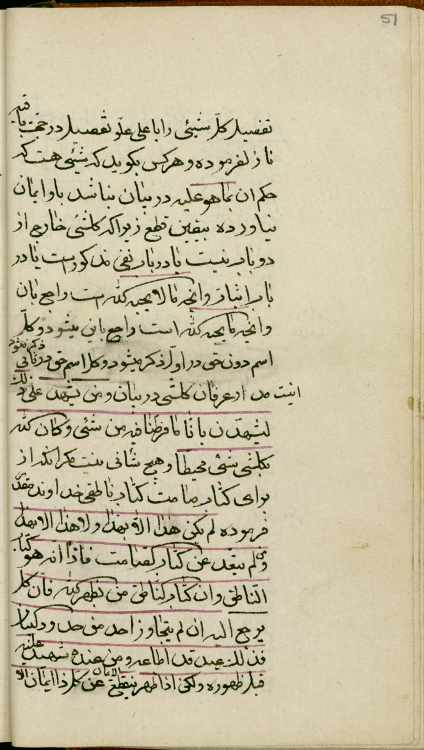 51
تفصیل کل شیئی را باعلی علو تفصیل در حجت باقیه
نازل فرموده و هر کس بگوید که شیئی هست که
حکم ان بما هو علیه در بیان نباشد باو ایمان
نیاورده بیقین قطع زیرا که کلشئی خارج از
دو باب نیست یا در باب نفی مذکور است یا در
باب اثبات وانچه مالا یحبه الله است راجع بان
وانچه ما یحبه الله است راجع باین میشود و کل
اسم دون حق در اول ذکر میشود و کل اسم حق در ثانی ذکر میشود
اینست مدار عرفان کلشئی در بیان و من یشهد علی ذلک
لیشهدن بانا ما فرطنا فیه من شئ و کان الله
بکلشئ محیطا و هیچ شانی نیست مگر انکه از
برای کتاب صامت کتاب ناطقی خداوند مقدر
فرموده لم یکن هذا الا بهذا ولا هذا الا بهذا
ولم ینفد عن کتاب الصامت فاذا انه هو کتاب
الناطق وان کتاب الناطق من یظهره الله فان کل
یرجع الیه ان لم یتجاوز احد من حدود کتاب
فذلک عبد قد اطاعه ومن عنده شهید علیه
قبل ظهوره ولکن اذا ظهر ینقطع الایمان عن کل ذا ایمان الا